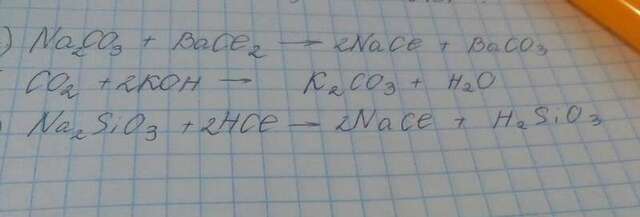 ) Na₂CO₃ + BaCl₂ → 2NaCl + BaCO₃
CO₂ + 2KOH → K₂CO₃ + H₂O
Na₂SiO₃ + 2HCl → 2NaCl + H₂SiO₃